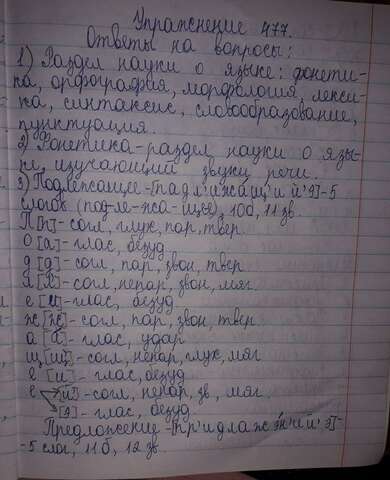 Упражнение 477.
Ответы на вопросы:
1) Раздел науки о языке: фонети-
ка, орфография, морфология, лекси-
ка, синтаксис, словообразование,
пунктуация.
2) Фонетика-раздел науки о язы-
ке, изучающий звуки речи.
3) Подлежащее-[падл'ижащ'и й'э]-5
слогов (под-ле-жа-ще-е), 10б, 11 зв.
П[п]-согл, глух, пар, твер.
О[а]-глас, безуд.
д[д]-согл, пар, звон, твер
л[л']-согл, непар, звон, мяг.
е[и]-глас, безуд.
ж[ж]-согл, пар, звон, твер
а[а]-глас, удар
щ[щ']-согл, непар, глух, мяг
е[и]-глас, безуд.
е [й']-согл, непар, зв, мяг.
[э]-глас, безуд.
Предложение-[пр'идлажэн'ий'э]-
-5 слог, 11б, 12 зв.